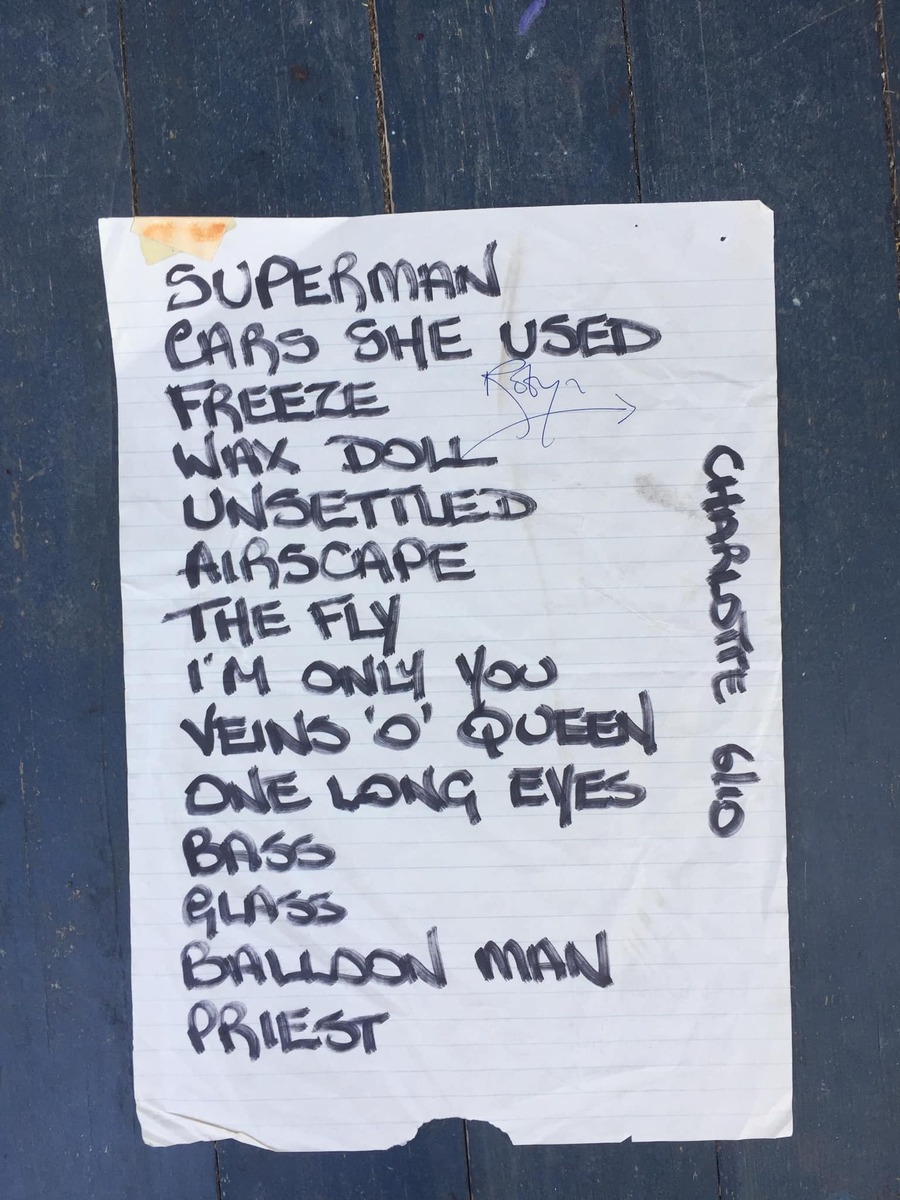 SUPERMAN
CARS SHE USED
FREEZE
Robyn
WAX DOLL
UNSETTLED
AIRSCAPE
THE FLY
I'M ONLY YOU
VEINS 'O' QUEEN
ONE LONG EYES
BASS
GLASS
BALLOON MAN
PRIEST
CHARLOTTE 6/10